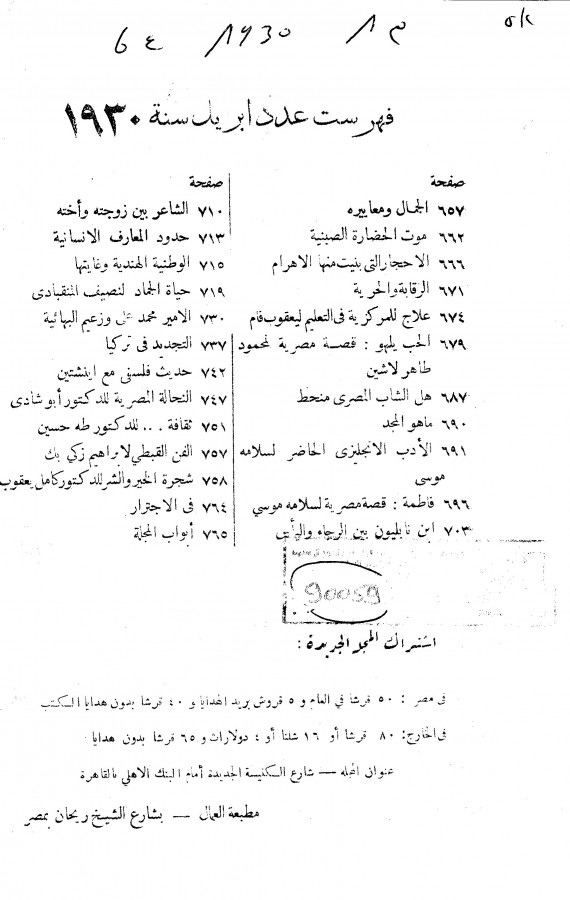 ok
م ١٨ ١٩٣٠ ع ٦
فهرست عدد ابريل سنة ١٩٣٠
صفحة
٦٥٧ الجمال ومعاييره
٦٦٢ موت الحضارة الصينية
٦٦٦ الاحجار التى بنيت منها الاهرام
٦٧١ الرقابة والحرية
٦٧٤ علاج للمركزية فى التعليم ليعقوب فام
٦٧٩ الحب يلهو : قصة مصرية لمحمود
طاهر لاشين
٦٨٧ هل الشاب المصرى منحط
٦٩٠ ماهو المجد
٦٩١ الأدب الانجليزى الحاضر لسلامه
موسى
٦٩٦ فاطمة : قصة مصرية لسلامه موسي
٧٠٣ ابن نابليون بين الرجاء واليأس
صفحة
٧١٠ الشاعر بين زوجته وأخته
٧١٣ حدود المعارف الانسانية
٧١٥ الوطنية الهندية وغايتها
٧١٩ حياة الجماد لنصيف المنقبادى
٧٣٠ الامير محمد على وزعيم البهائية
٧٣٧ التجديد فى تركيا
٧٤٢ حديث فلسفى مع اينشتين
٧٤٧ النحالة المصرية للدكتور أبو شادى
٧٥١ ثقافة . . . للدكتور طه حسين
٧٥٧ الفن القبطي لابراهيم زكي بك
٧٥٨ شجرة الخير والشر للدكتور كامل يعقوب
٧٦٤ فى الاجترار
٧٦٥ أبواب المجلة
90059
اشتراك المجلة الجديدة :
فى مصر : ٥٠ قرشا في العام و ٥ قروش بريد الهدايا و ٤٠ قرشا بدون هدايا الكتب
فى الخارج: ٨٠ قرشا أو ١٦ شلنا أو ٤ دولارات و ٦٥ قرشا بدون هدايا
عنوان المجله — شارع الكنيسة الجديدة أمام البنك الاهلي بالقاهرة
مطبعة العمال — بشارع الشيخ ريحان بمصر